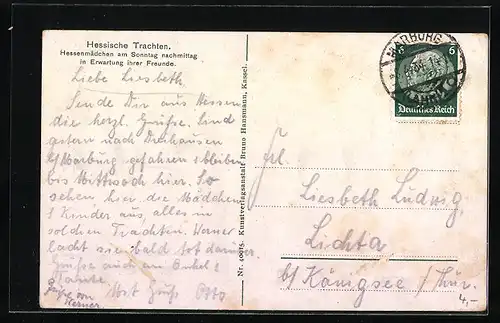 Hessische Trachten.
Hessenmädchen am Sonntag nachmittag
in Erwartung ihrer Freunde.
Liebe Liesbeth
Sende Dir aus Hessen
die herzl. Grüße. Sind
gestern nach Dreihausen
b/Marburg gefahren & bleiben
bis Mittwoch hier. So
sehen hier die Mädchen
& Kinder aus, alles in
solchen Trachten. Werner
lacht sich bald tot darüber.
Grüße auch an Onkel &
Tante.
Mit Gruß Otto
Grüße von
Werner.
Nr. 40015. Kunstverlagsanstalt Bruno Hansmann, Kassel.
MARBURG
6 6
Deutsches Reich
Frl.
Liesbeth Ludwig
Lichta
b/ Königsee / Thür.
4,-